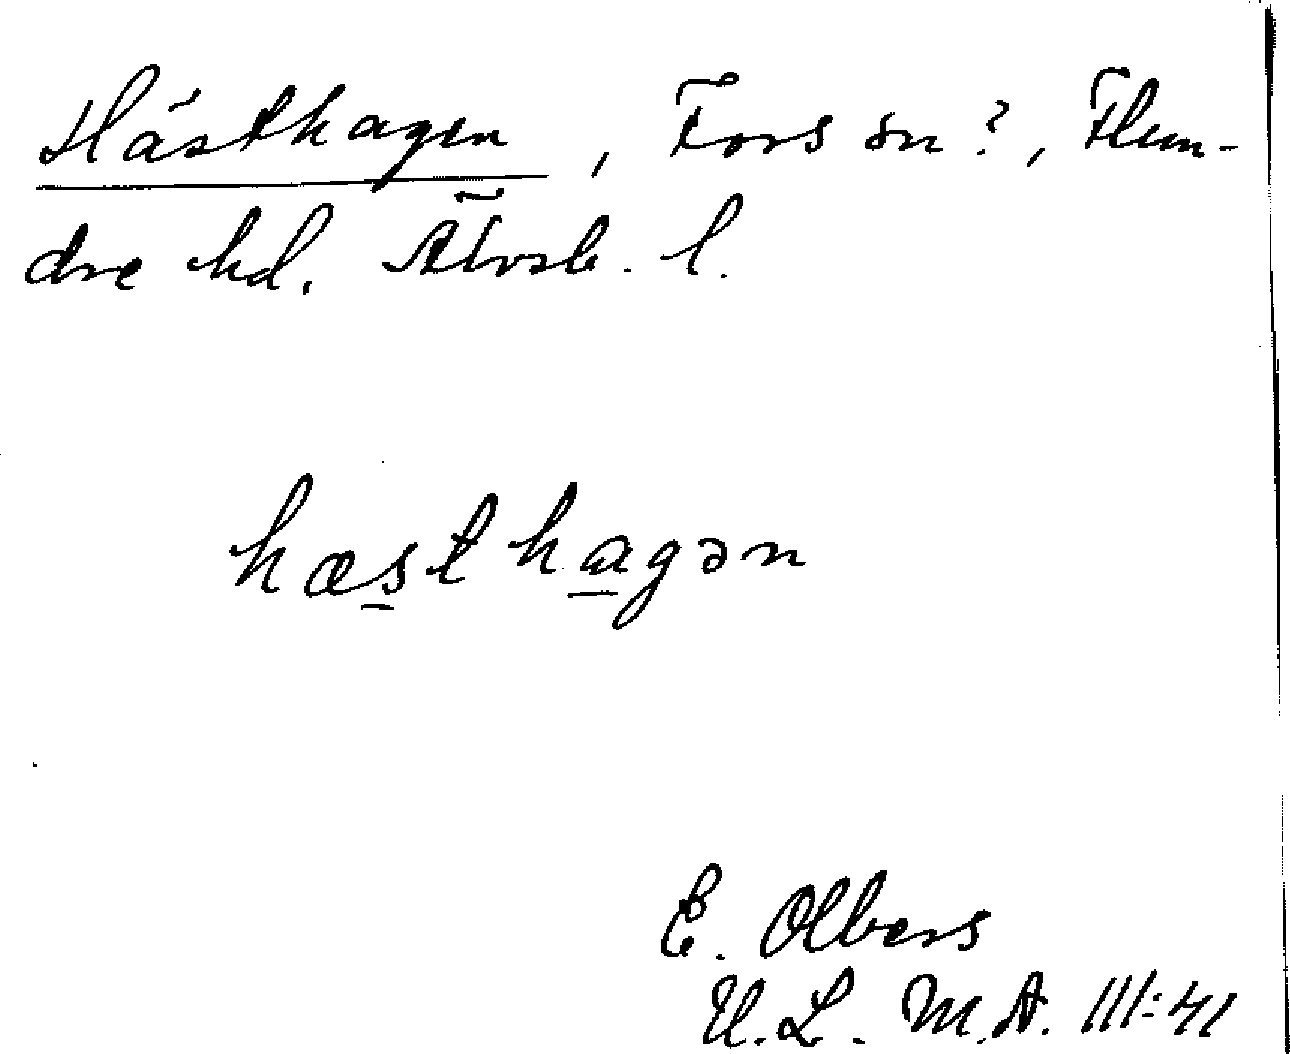 Hästhagen, Fors sn?, Flun-
dre hd. Älvsb. l.
hæsthagən
E. Olbers
U.L.M.A. 111:41